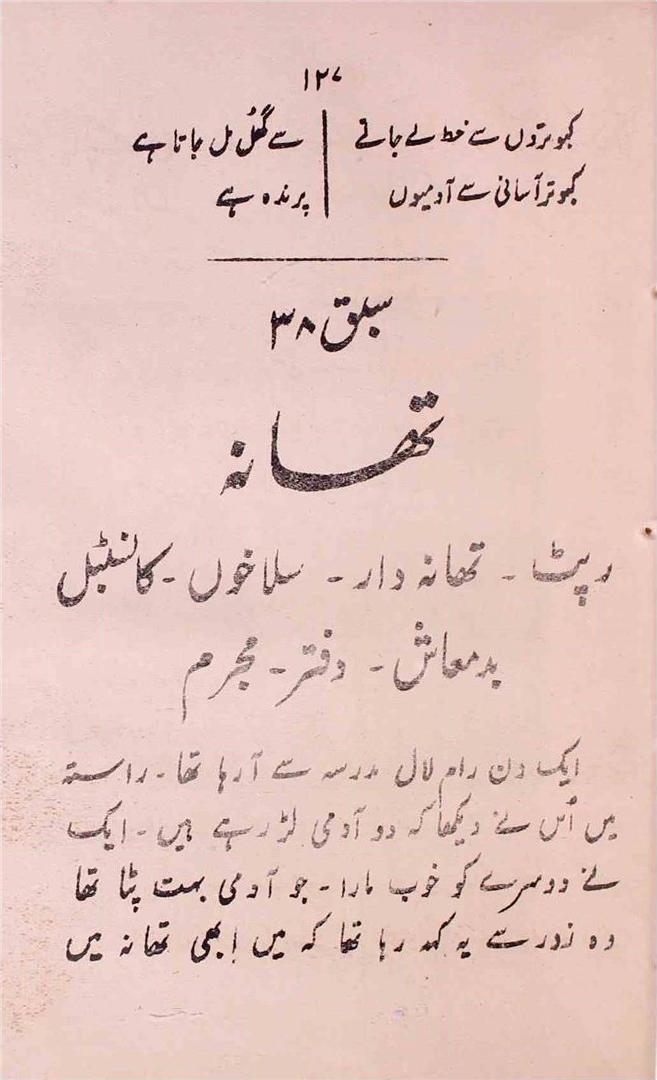 ۱۲۷
کبوتروں سے خط لے جاتے | سے گھُل مل جاتا ہے
کبوتر آسانی سے آدمیوں | پرندہ ہے
سبق ۳۸
تھانہ
رپٹ - تھانہ دار - سلاخوں - کانسٹبل
بدمعاش - دفتر - مجرم
ایک دن رام لال مدرسہ سے آ رہا تھا - راستہ
میں اُس نے دیکھا کہ دو آدمی لڑ رہے ہیں - ایک
نے دوسرے کو خوب مارا - جو آدمی بہت پٹا تھا
وہ زور سے یہ کہہ رہا تھا کہ میں اِبھی تھانہ میں